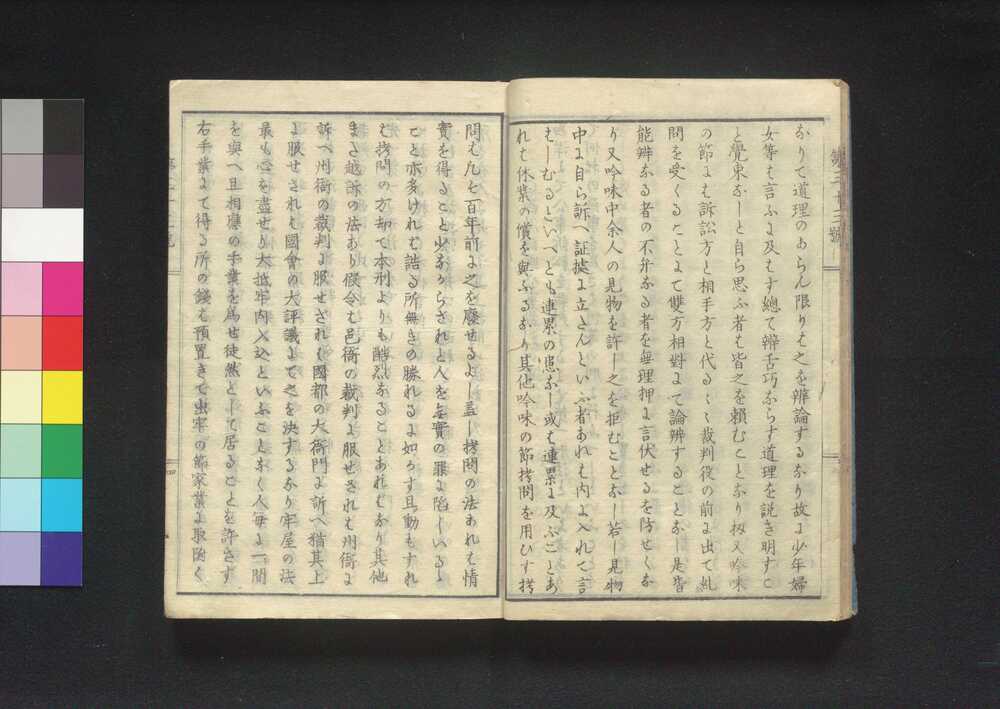 なりて道理のあらん限りは之を辨論するなり故に少年婦
女等は言ふに及はす總て辨舌巧ならす道理を説き明すこ
と覺束なしと自ら思ふ者は皆之を頼むことなり扨又吟味
の節には訴訟方と相手方と代る〱裁判役の前に出て糺
問を受くることにて雙方相對にて論辨することなし是皆
能辨なる者の不弁なる者を無理押に言伏せるを防せくな
り又吟味中余人の見物を許し之を拒むことなし若し見物
中に自ら訴へ証據に立さんといふ者あれは内に入れて言
はしむるといへとも連累の患なし或は連累に及ふことあ
れは休業の償を與ふるなり其他吟味の節拷問を用ひす拷
問は九七百年前に之を廢せるよし盖し拷問の法あれは情
實を得ること少なからされと人を無實の罪に陷しいるゝ
こと亦多けれは詰る所無きの勝れるに如かす且動もすれ
は拷問の方却て本刑よりも酷烈なることあれはなり其他
また越訴の法あり假令は邑衙の裁判に服せされは州衙に
訴へ州衙の裁判に服せされは國都の大衙門に訴へ猶其上
に服せされは國會の大評議にて之を決するなり牢屋の法
最も心を盡せり大抵牢内入込といふことなく人毎に一間
を與へ且相應の手業を為せ徒然として居ることを許さす
右手業にて得る所の錢は預置きて出牢の節家業に取附く